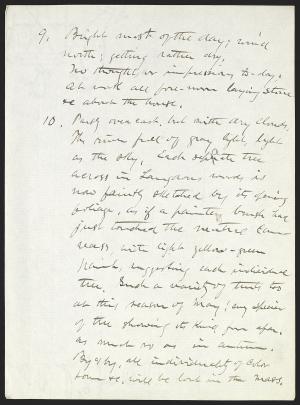 9. Bright most of the day; wind
north; getting rather dry.
No thoughts or impressions to-day.
At work all fore-noon laying stone
&c about the house.
10. Partly overcast, but with dry clouds.
The river full of gray light, light
as the sky. Each separate tree
across in Langdons woods is
now faintly sketched by its opening
foliage, as if a painters brush had
just touched the neutral
with light yellow-green
paint, suggesting each individual
tree. Such a variety of tints too
at this season of May; any species
of tree showing its kind, from afar,
as much so as in autumn.
By & by, all individuality of color
form &c, will be lost in the mass.